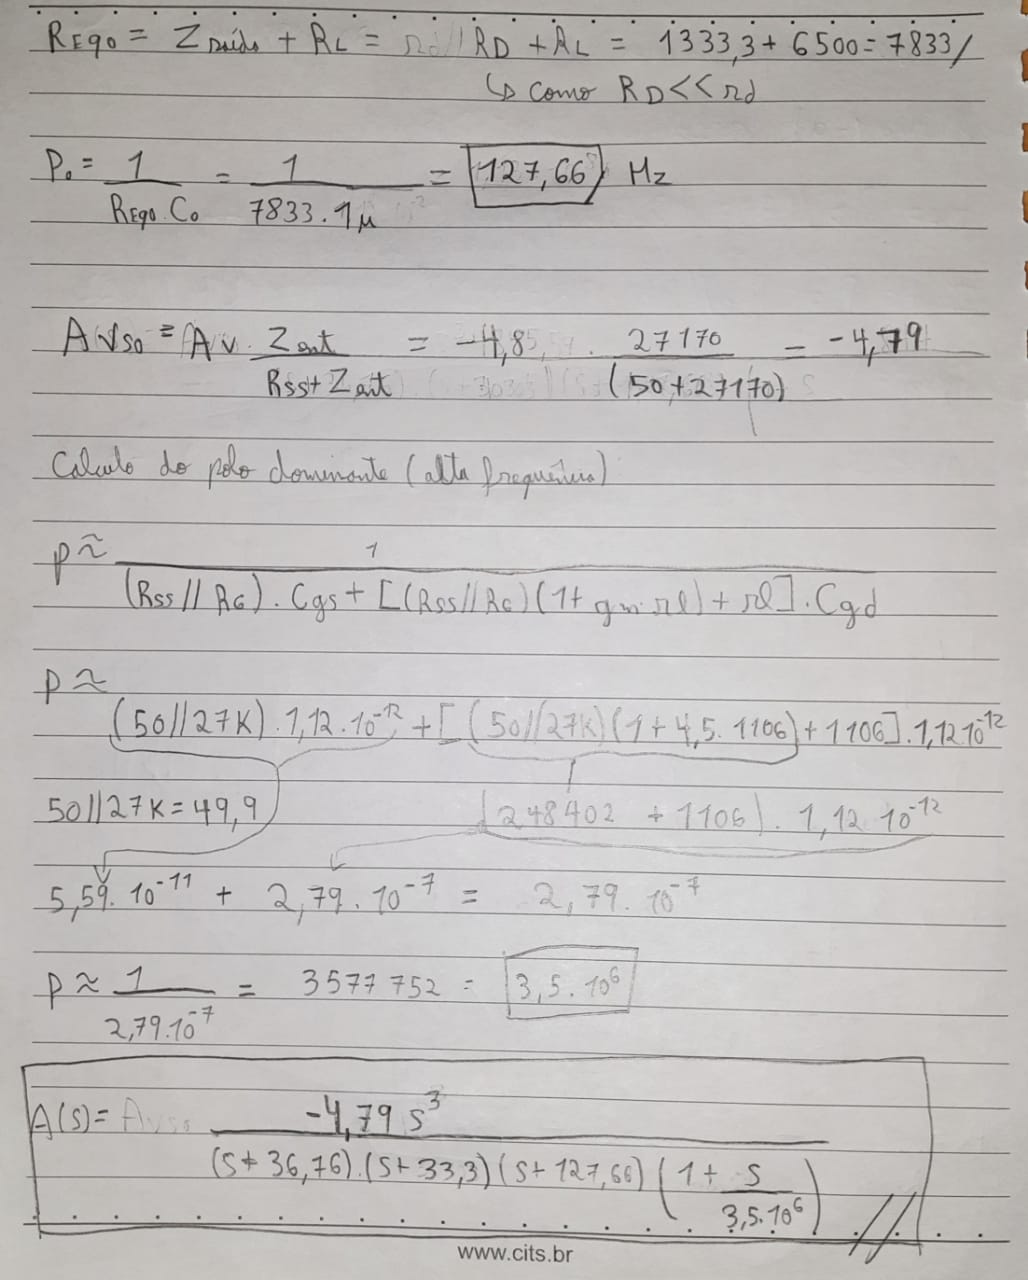 REqo = Zsaída + RL = rd // RD + RL = 1333,3 + 6500 = 7833 /
↳ como RD << rd
Po = 1 / REqo . Co = 1 / 7833 . 1μ = 127,66 Hz
Avso = Av . Zent / Rss + Zent = -4,85 . 27170 / (50 + 27170) = -4,79
Calculo do polo dominante (alta frequência)
p ≈ 1 / (Rss // RG) . Cgs + [(Rss // RG) (1 + gm . rl) + rl] . Cgd
p ≈ (50 // 27K) . 1,12 . 10^-12 + [(50 // 27K) (1 + 4,5 . 1106) + 1106] . 1,12 10^-12
50 // 27K = 49,9 (248402 + 1106) . 1,12 10^-12
5,59 . 10^-11 + 2,79 . 10^-7 = 2,79 . 10^-7
p ≈ 1 / 2,79 . 10^-7 = 3577 752 = 3,5 . 10^6
A(s) = Avso -4,79 s^3 / (s + 36,76) . (s + 33,3) (s + 127,66) (1 + s / 3,5 . 10^6) //
www.cits.br